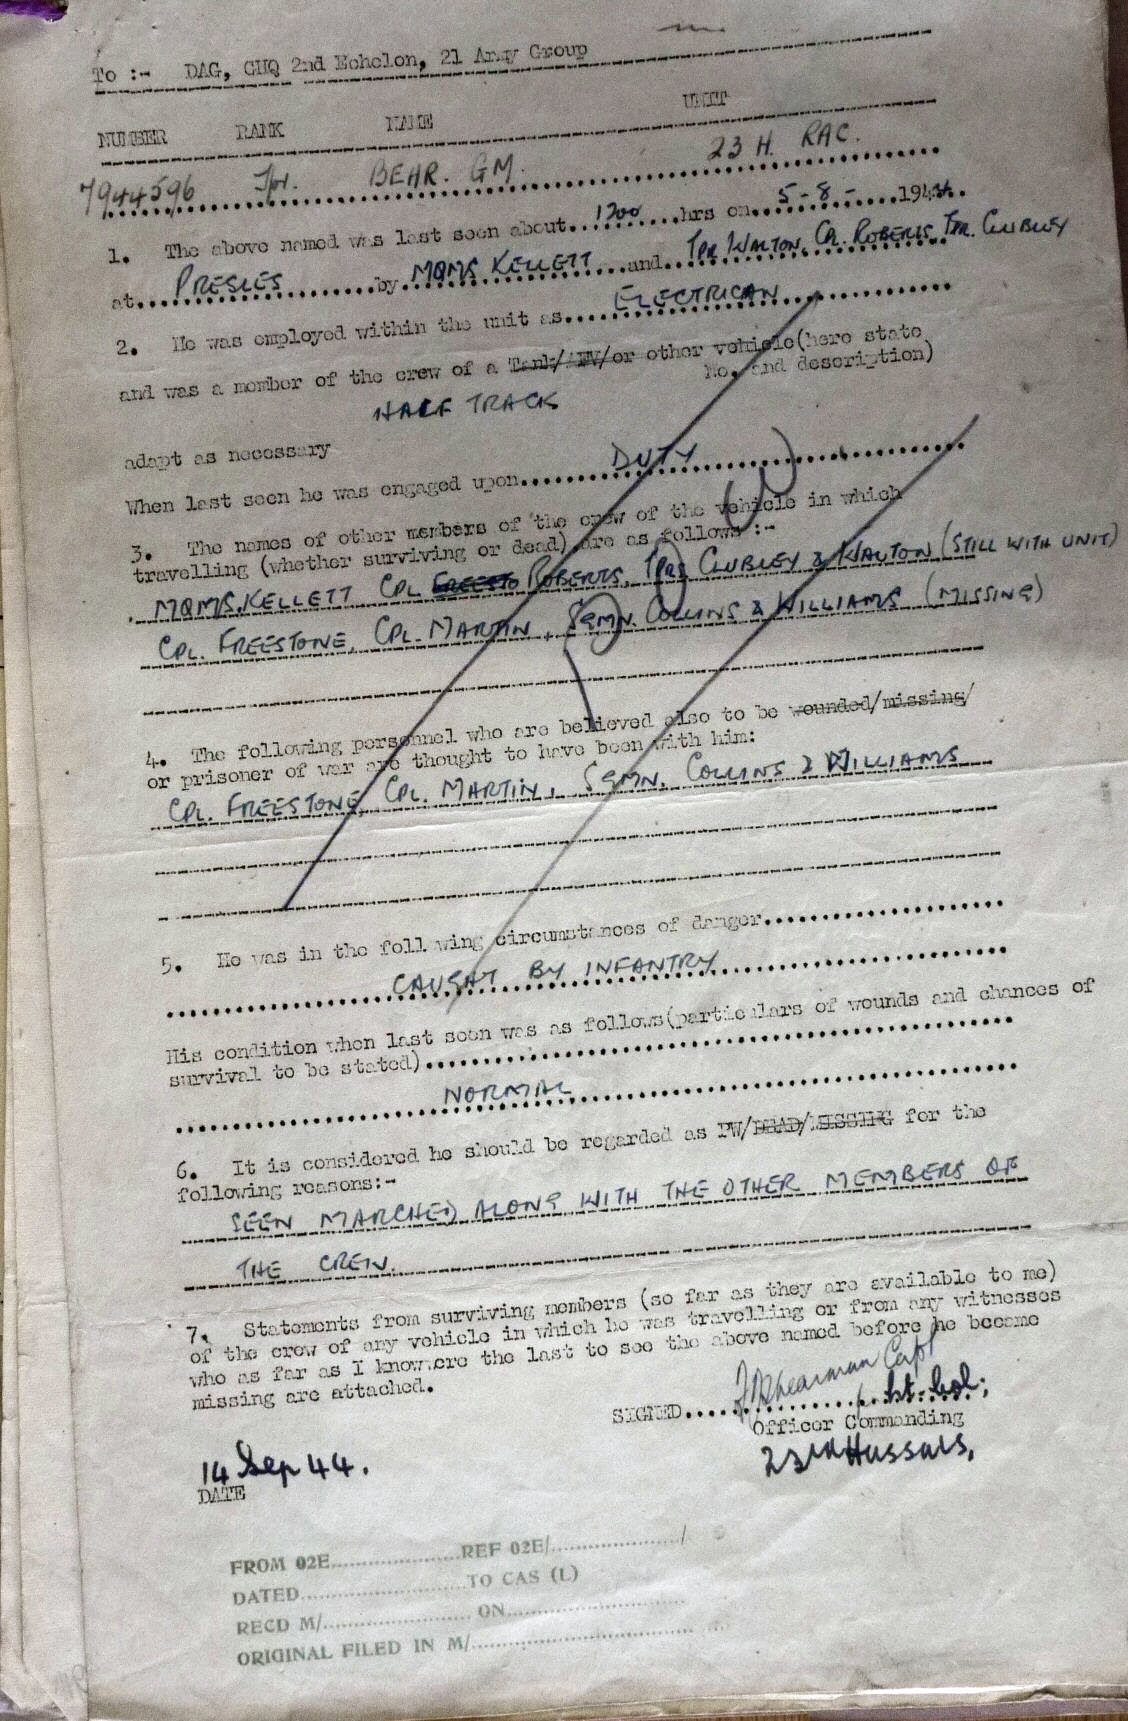 To :- DAG, GHQ 2nd Echelon, 21 Army Group
NUMBER RANK NAME UNIT
7944596 Tpr. BEHR. GM. 23 H. RAC.
1. The above named was last seen about..1200....hrs on..5-8-......1944..
at....PRESLES........by MQMS KELLETT...and...TPR WALTON, CPL. ROBERTS, TPR. CLUBLEY
2. He was employed within the unit as...ELECTRICAN..............
and was a member of the crew of a Tank/AFV/or other vehicle(here state
No. and description)
HALF TRACK
adapt as necessary
When last seen he was engaged upon........DUTY..................
3. The names of other members of the crew of the vehicle in which
travelling (whether surviving or dead) are as follows :-
MQMS. KELLETT CPL. FREESTO ROBERTS, TPRS CLUBLEY & WALTON (STILL WITH UNIT)
CPL. FREESTONE, CPL. MARTIN, SGMN. COLLINS & WILLIAMS (MISSING)
4. The following personnel who are believed also to be wounded/missing/
or prisoner of war are thought to have been with him:
CPL. FREESTONE, CPL. MARTIN, SGMN. COLLINS & WILLIAMS
5. He was in the foll wing circumstances of danger....................
CAUGHT BY INFANTRY
His condition when last seen was as follows(particulars of wounds and chances of
survival to be stated)..................................................
NORMAL
6. It is considered he should be regarded as PW/DEAD/MISSING for the
following reasons:-
SEEN MARCHED ALONG WITH THE OTHER MEMBERS OF
THE CREW.
7. Statements from surviving members (so far as they are available to me)
of the crew of any vehicle in which he was travelling or from any witnesses
who as far as I know were the last to see the above named before he became
missing are attached.
Shearman Capt
SIGNED....................Lt-Col;
Officer Commanding
23rd Hussars,
14 Sep 44.
DATE
FROM 02E....................REF 02E/..................../
DATED........................TO CAS (L)
RECD M/...................... ON..........................
ORIGINAL FILED IN M/....................................